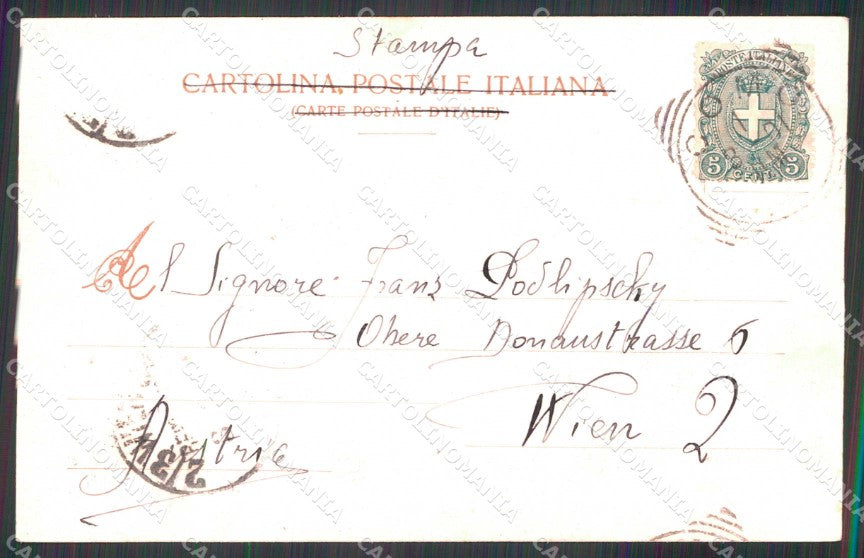 Stampa
CARTOLINA POSTALE ITALIANA
(CARTE POSTALE D'ITALIE)
POSTE ITALIANE
5 5
Al Signore Franz Podlipschy
Obere Donaustrasse 6
Wien 2
Austria
2/3
CARTOLINOMANIA